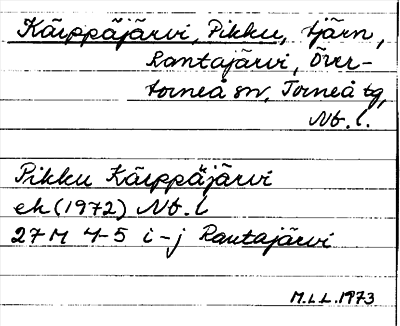 Kärppäjärvi, Pikku, tjärn,
Rantajärvi, Över-
torneå sn, Torneå tg,
Nb. l.
Pikku Kärppäjärvi
ek (1972) Nb. l
27M 4-5 i-j Rantajärvi
M.L.L. 1973